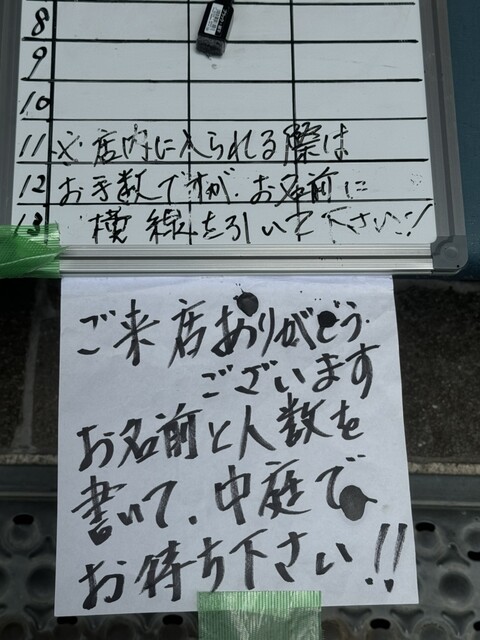 8
9
10
11 ※店内に入られる際は
12 お手数ですが、お名前に
13 横線を引いて下さい!
ご来店ありがとう
ございます
お名前と人数を
書いて、中庭で
お待ち下さい!!